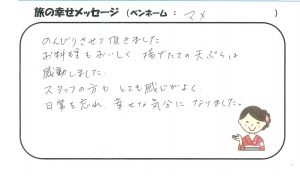 旅の幸せメッセージ（ペンネーム：マメ）
のんびりさせて頂きました。
お料理もおいしく 揚げたての天ぷらは
感動しました。
スタッフの方も とても感じがよく
日常を忘れ、幸せな気分になりました。